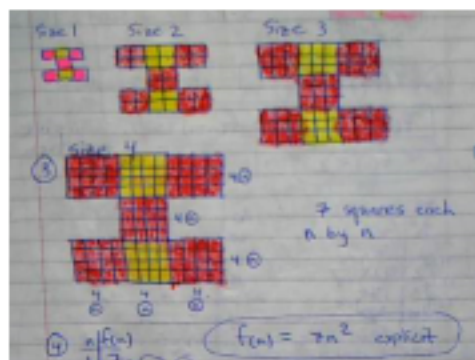 Size 1 Size 2 Size 3
Size 4
3
4 n
4 n
4 n
7 squares each
n by n
4 4 4
n n n
4 n f(n)
f(n) = 7n² explicit
1 7